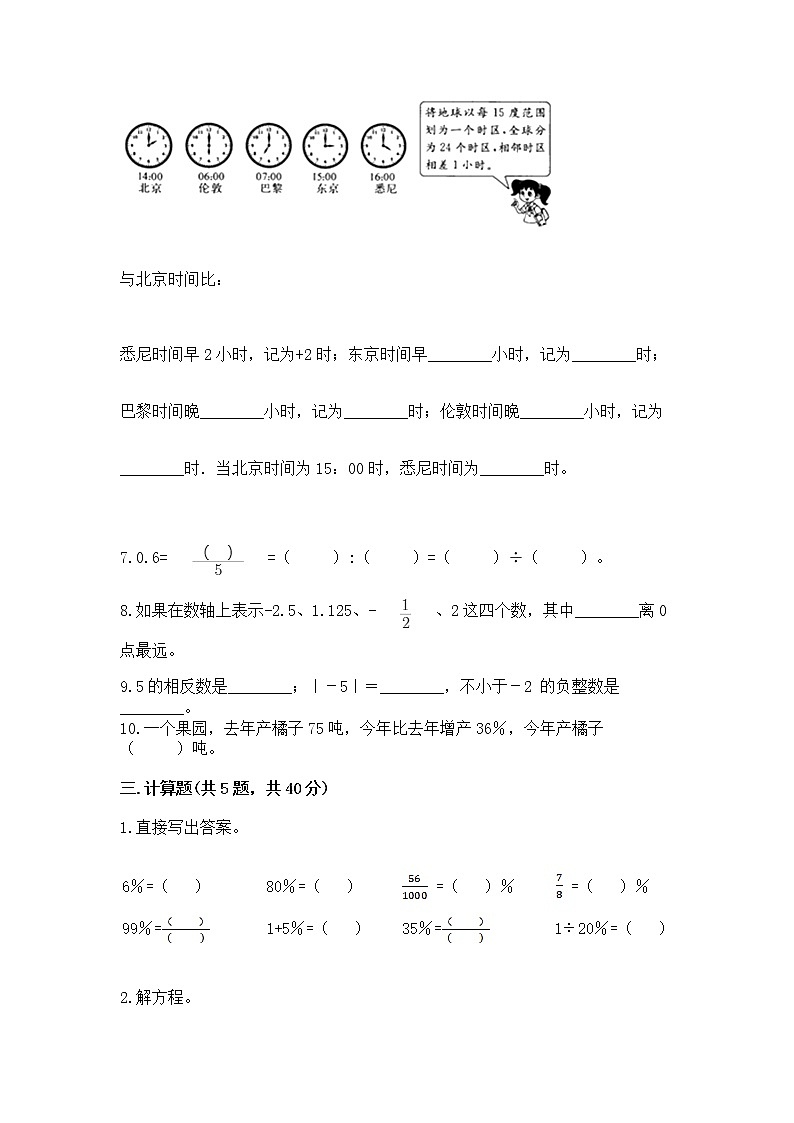 将地球以每 15 度范围
划为一个时区,全球分
为 24 个时区,相邻时区
相差 1 小时。
14:00 06:00 07:00 15:00 16:00
北京 伦敦 巴黎 东京 悉尼
与北京时间比:
悉尼时间早 2 小时,记为+2 时;东京时间早________小时,记为________时;
巴黎时间晚________小时,记为________时;伦敦时间晚________小时,记为
________时. 当北京时间为 15:00 时,悉尼时间为________时。
7.0.6= ( )/5 =( ):( )=( )÷( )。
8.如果在数轴上表示-2.5、1.125、- 1/2 、2 这四个数,其中________离 0
点最远。
9.5 的相反数是________;|-5|=________,不小于-2 的负整数是
________。
10.一个果园,去年产橘子 75 吨,今年比去年增产 36%,今年产橘子
( )吨。
三.计算题(共 5 题,共 40 分)
1.直接写出答案。
6%=( ) 80%=( ) 56/1000 =( )% 7/8 =( )%
99%=( )/( ) 1+5%=( ) 35%=( )/( ) 1÷20%=( )
2.解方程。